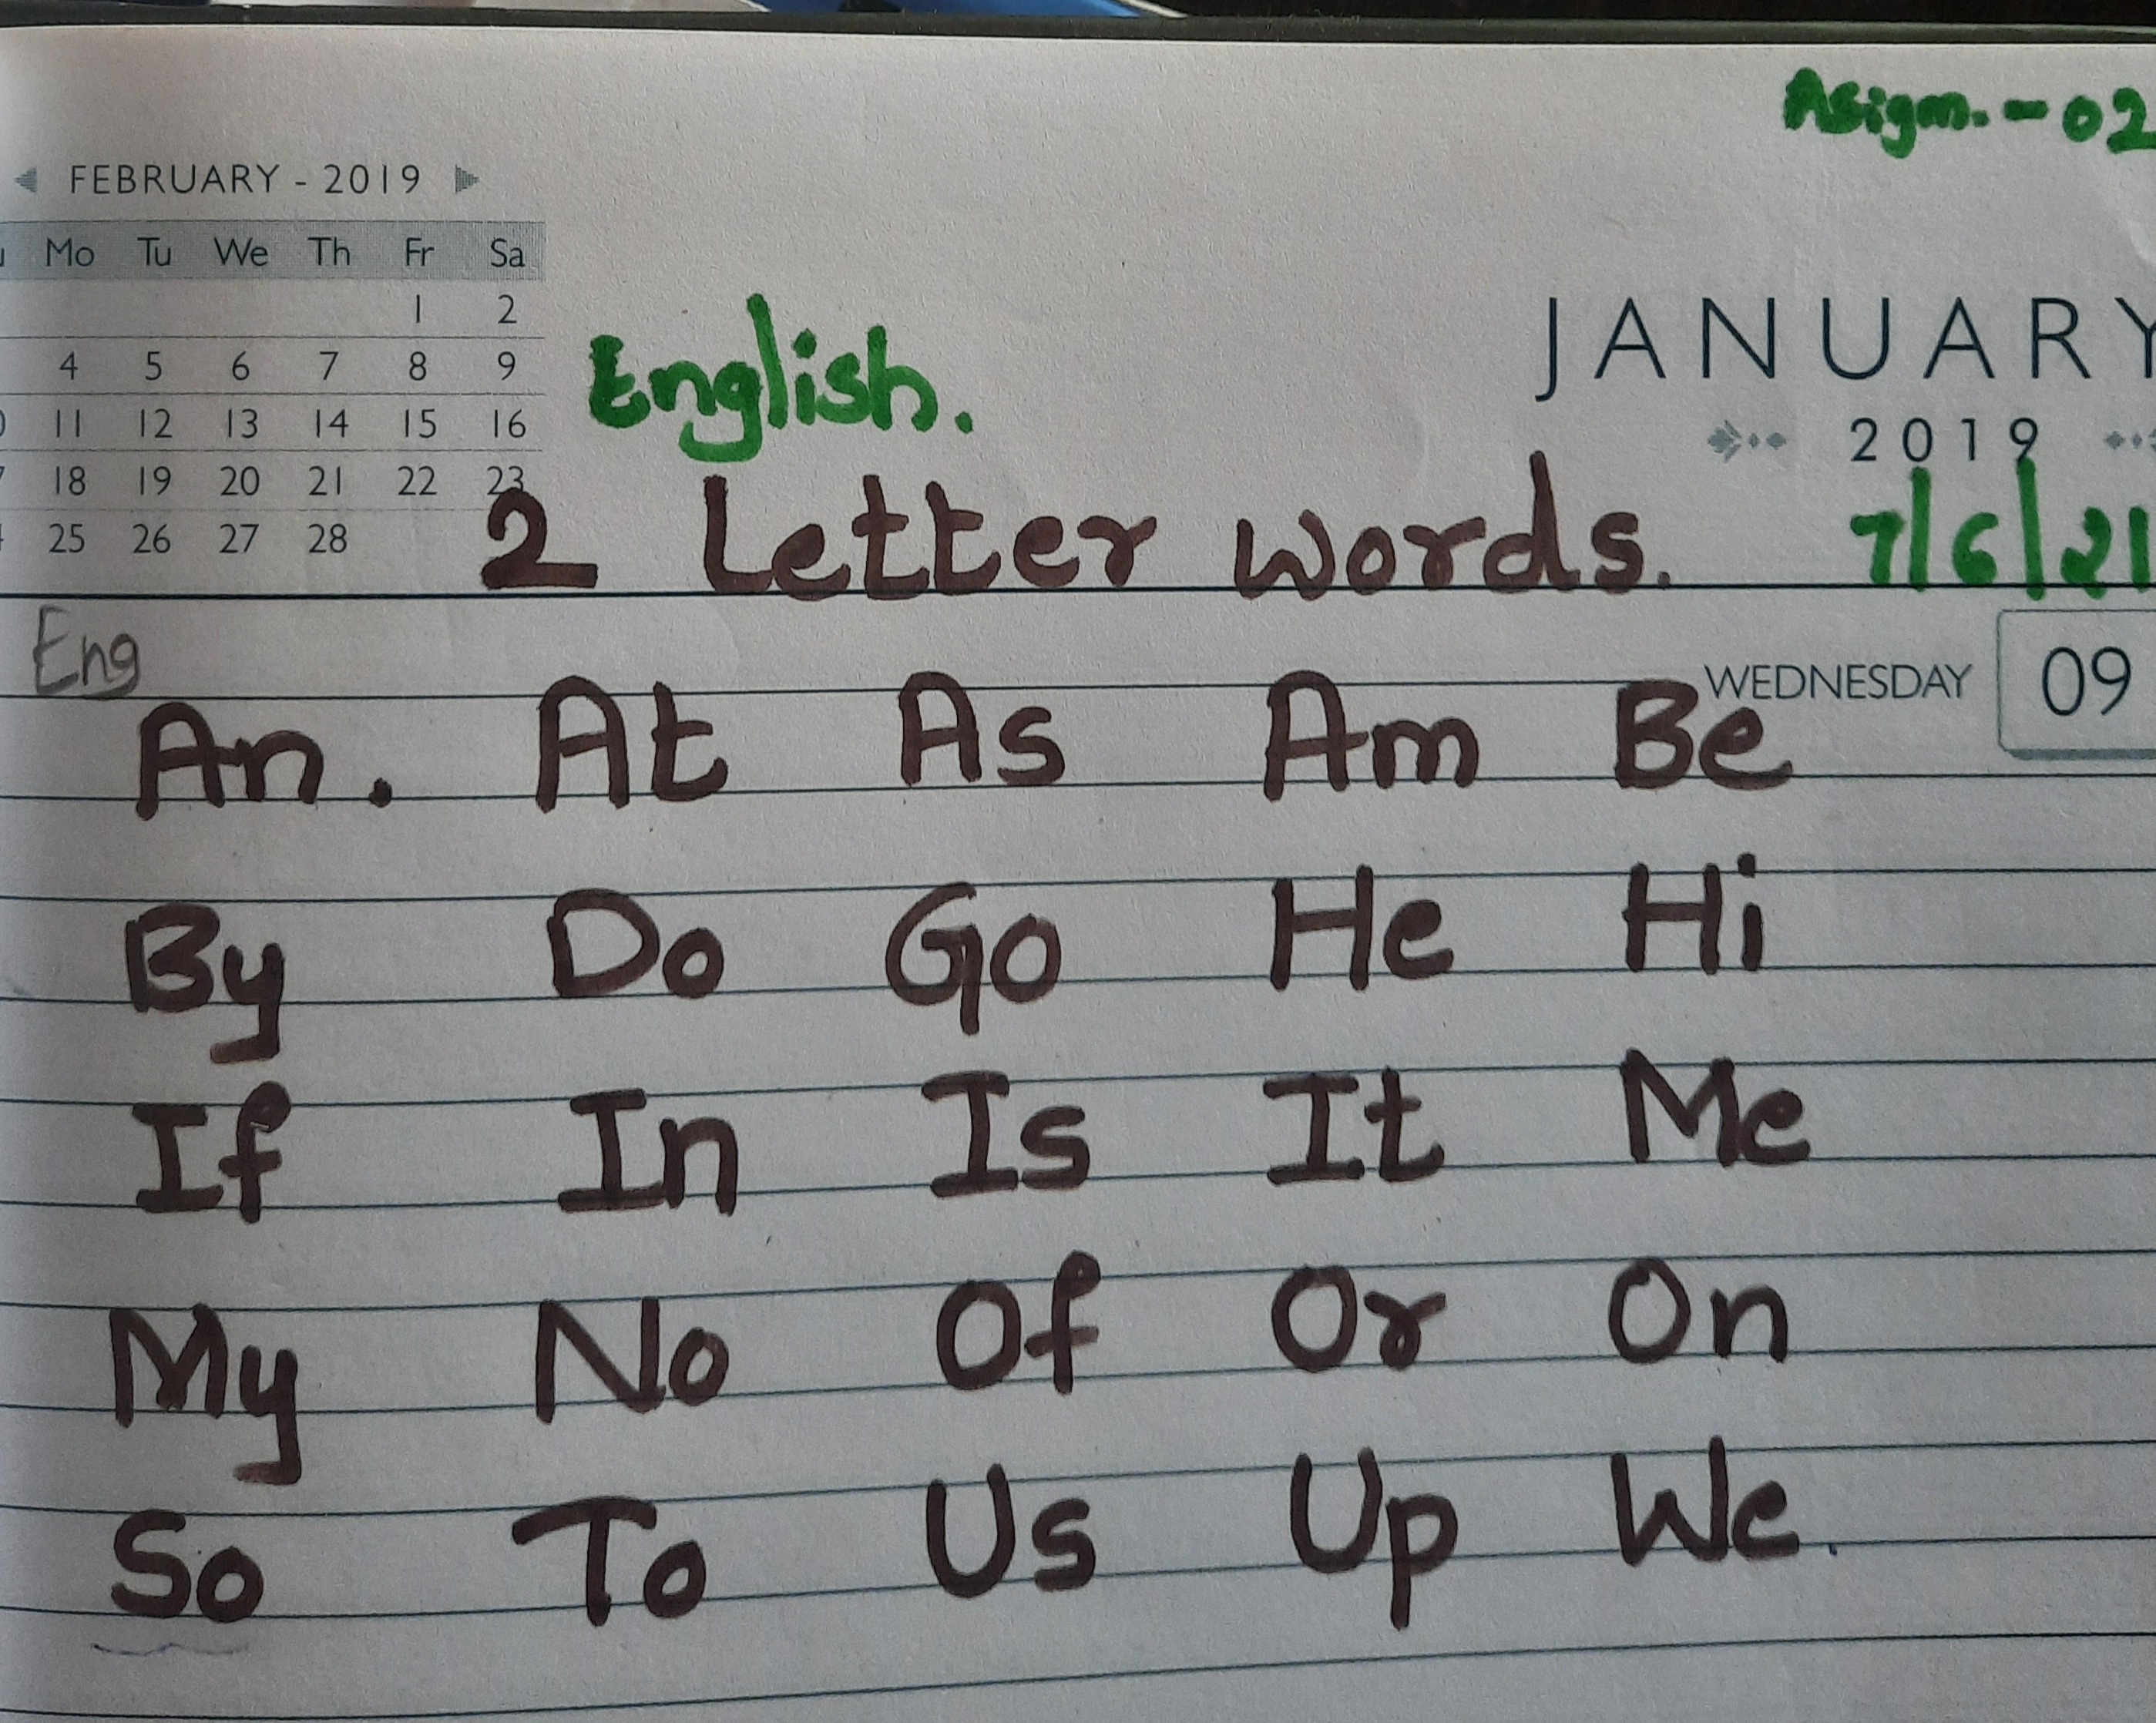 Asigm.-02
◀ FEBRUARY - 2019 ▶
Mo Tu We Th Fr Sa
1 2
4 5 6 7 8 9
11 12 13 14 15 16
18 19 20 21 22 23
25 26 27 28
English.
JANUARY
2019
2 Letter words. 7/6/21
Eng
WEDNESDAY 09
An. At As Am Be
By Do Go He Hi
If In Is It Me
My No Of Or On
So To Us Up We.